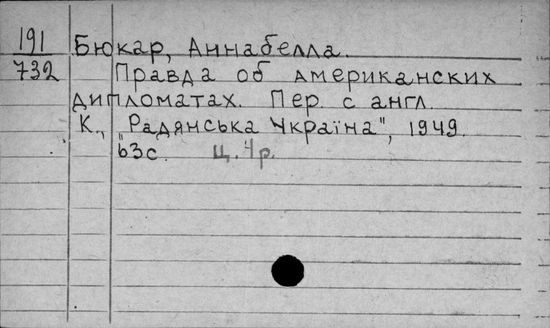 191
732
Бюкар, Аннабелла.
Правда об американских
дипломатах. Пер. с англ.
К., „Радянська Україна", 1949.
63с. Ц. 4р.